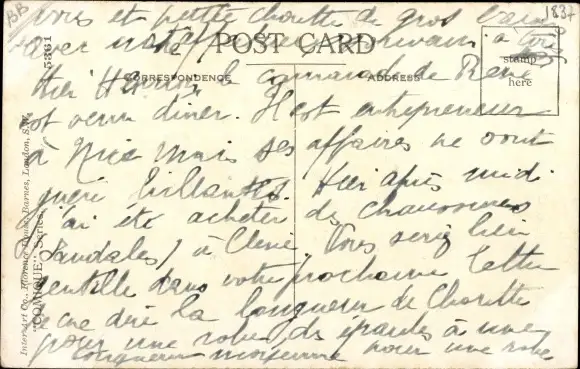 BB
1837
vous et petite Choutte de gros
avec notre
POST CARD
5361
stamp
here
CORRESPONDENCE
ADDRESS
Hier le camarade de René
est venu diner. Il est entrepreneur
à Nice mais ses affaires ne vont
guère brillantes. Hier après midi
j'ai été acheter des chaussures
(Sandales) à Cléné. Vous serez bien
gentille dans votre prochaine lettre
de me dire la longueur de Choutte
pour une robe, des épaules à une
longueur moyenne pour une robe
Inter-Art Co., Florence House, Barnes, London, S.W.
"COMIQUE" Series.